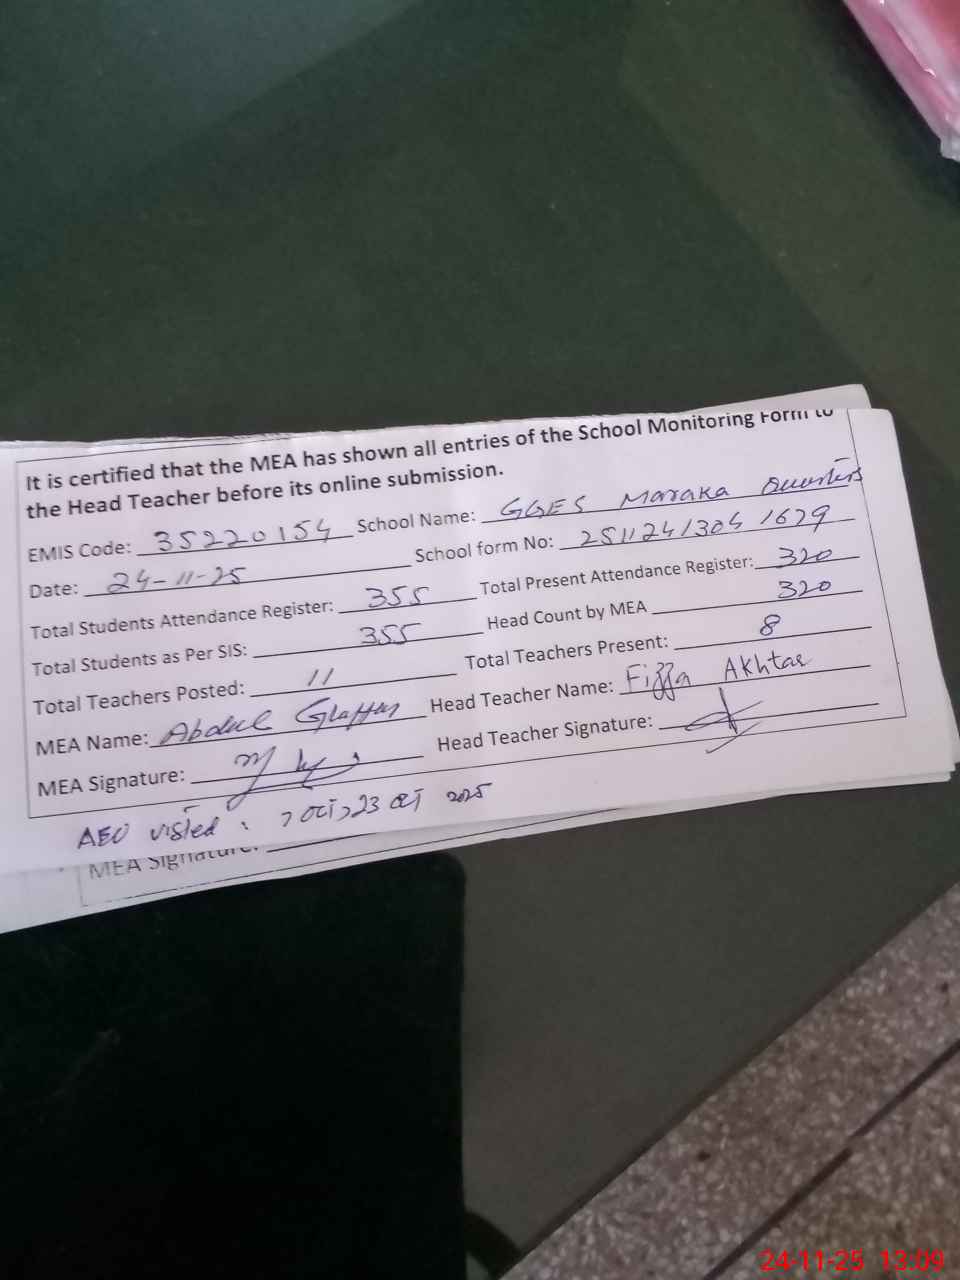 It is certified that the MEA has shown all entries of the School Monitoring Form to
the Head Teacher before its online submission.
EMIS Code: 35220154 School Name: GGES Maraka Quarters
Date: 24-11-25 School form No: 2511241304 1679
Total Students Attendance Register: 355 Total Present Attendance Register: 320
Total Students as Per SIS: 355 Head Count by MEA 320
Total Teachers Posted: 11 Total Teachers Present: 8
MEA Name: Abdul Ghaffar Head Teacher Name: Fizza Akhtar
MEA Signature: Head Teacher Signature:
AEO visted : 7 Oct, 23 Oct 2025
MEA Signature:
24-11-25 13:09